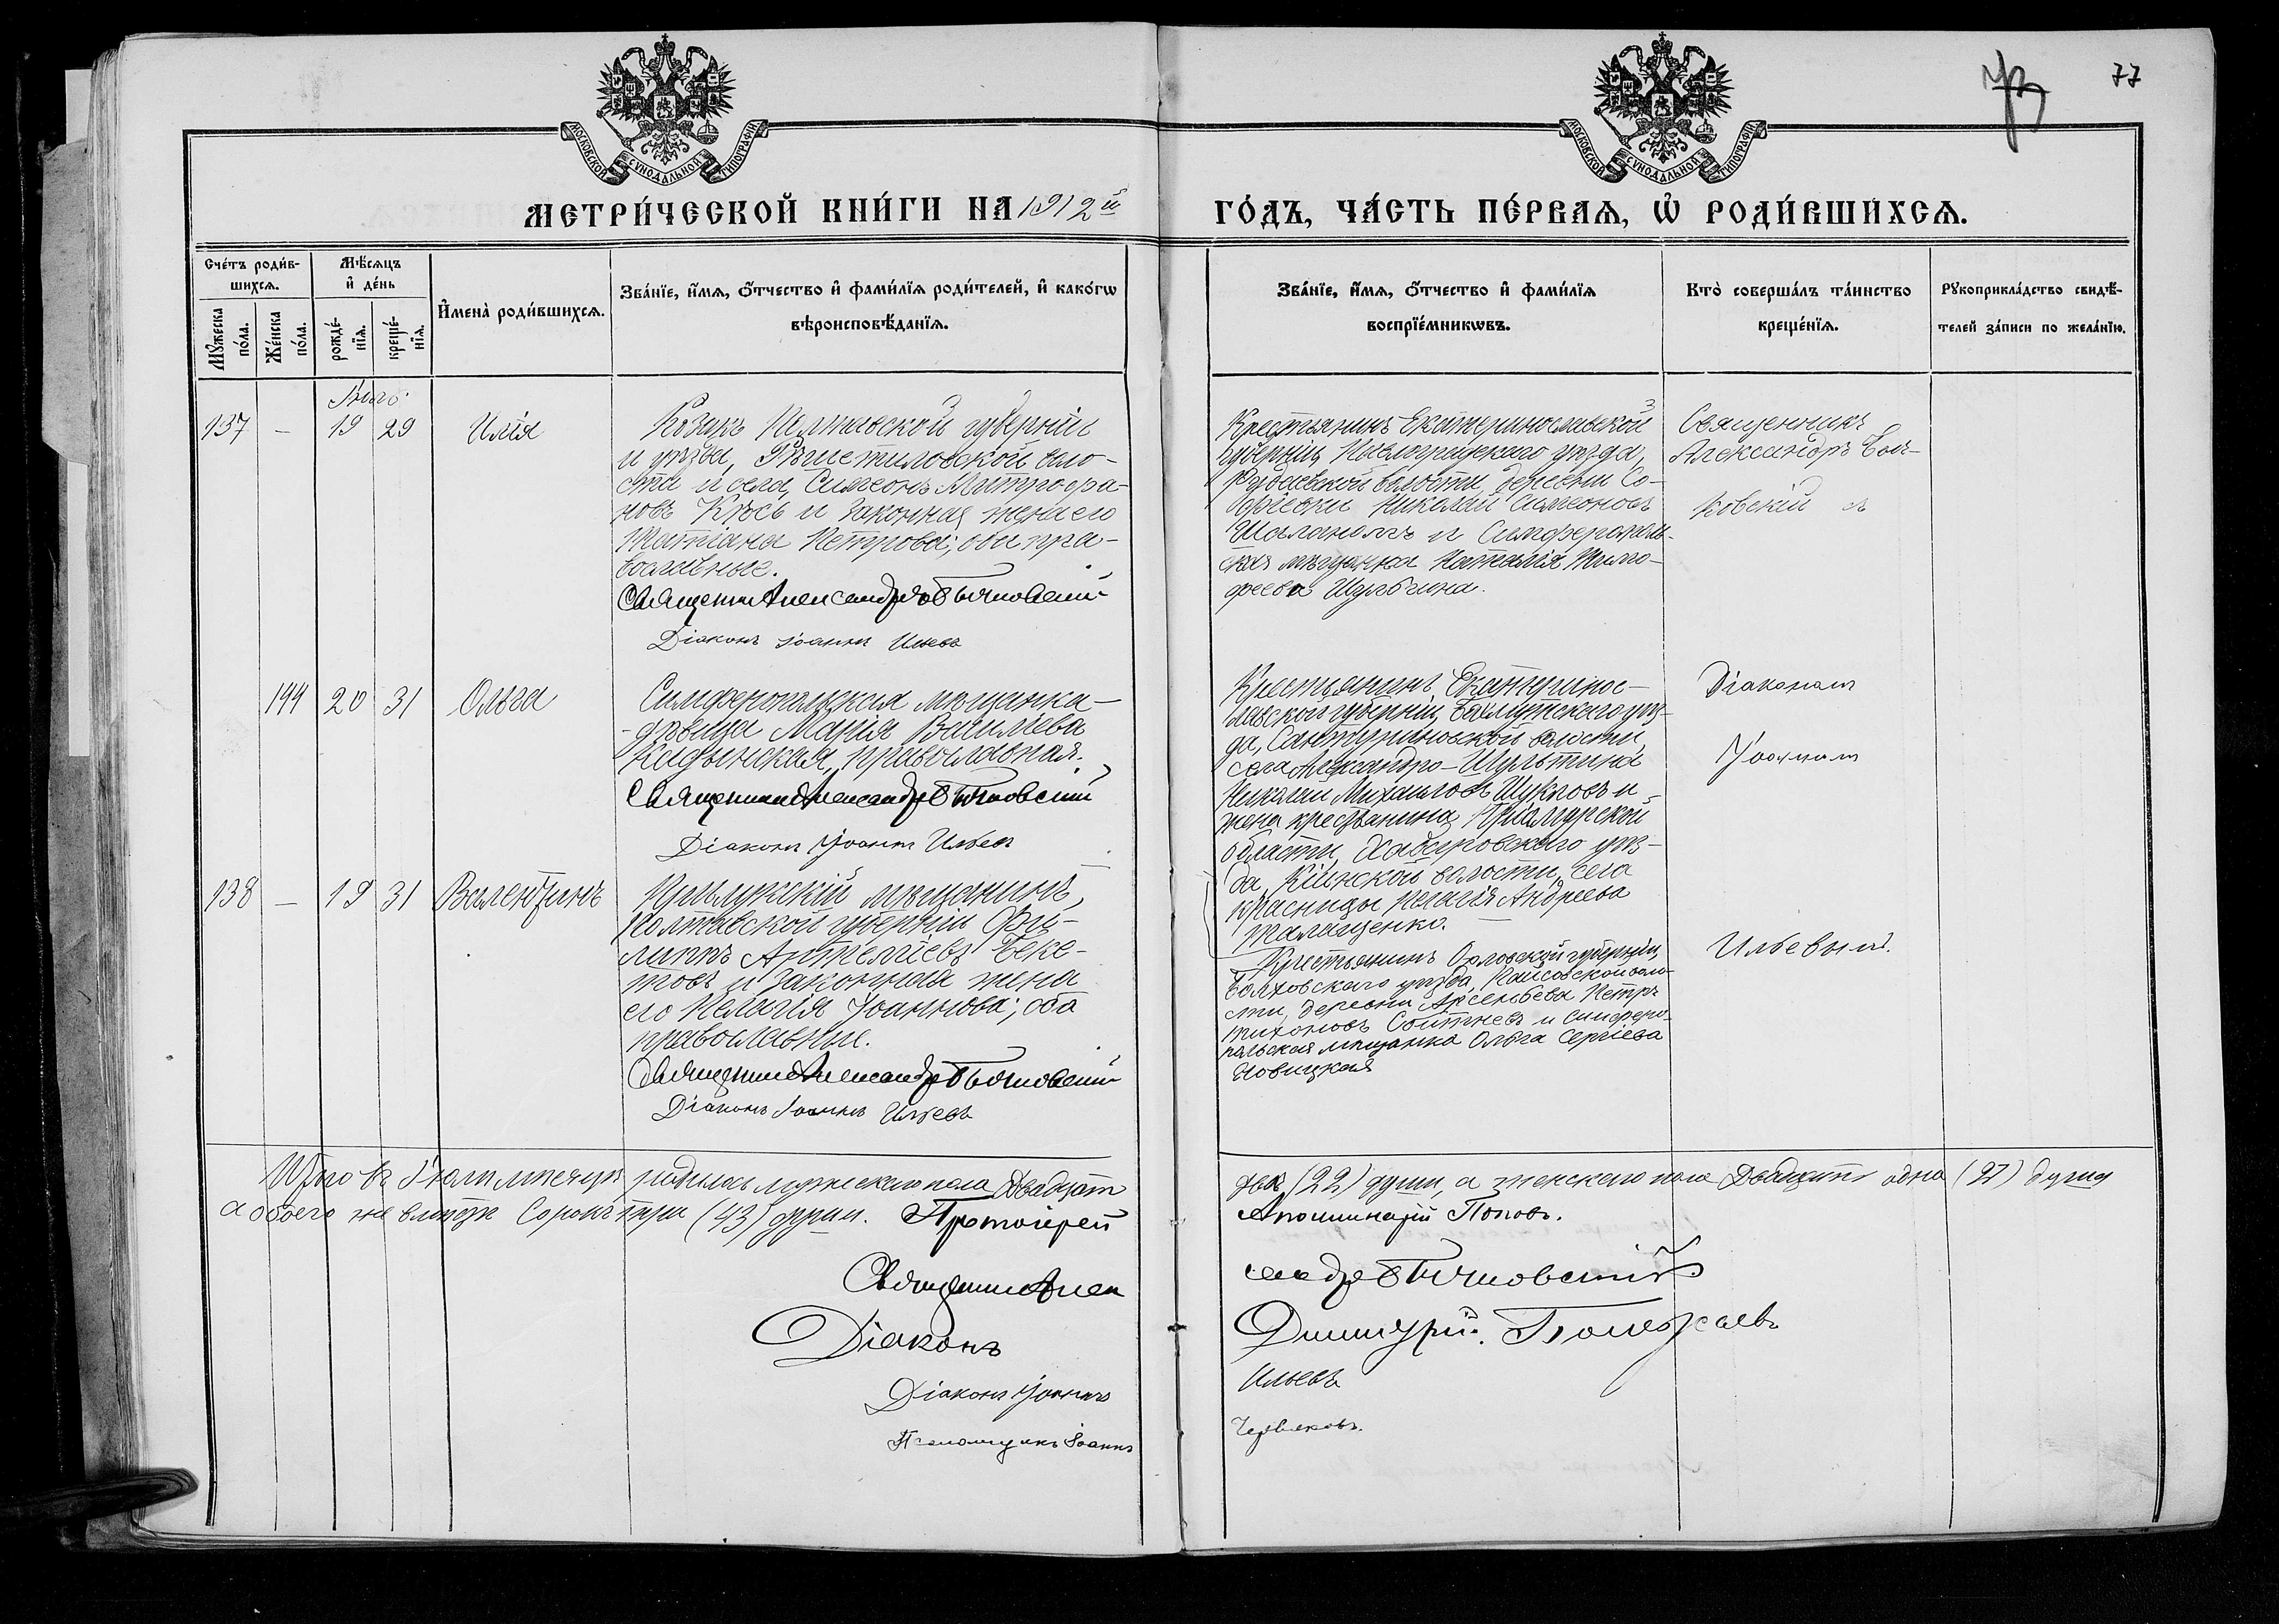 77
МОСКОВСКОЙ СѴНОДАЛЬНОЙ ТИПОГРАФІИ
МОСКОВСКОЙ СѴНОДАЛЬНОЙ ТИПОГРАФІИ
МЕТРИ́ЧЕСКОЙ КНИ́ГИ НА 1912й
ГО́ДЪ, ЧА́СТЬ ПЕ́РВАѦ, Ѡ҆ РОДИ́ВШИХСѦ.
Сче́тъ роди́в-
шихсѧ.
Мꙋ́жеска по́ла.
Же́нска по́ла.
Мѣ́сѧцъ
и҆ де́нь
рожде́-нїѧ.
креще́-нїѧ.
И҆мена̀ роди́вшихсѧ.
Зва́нїе, и҆́мѧ, ѻ҆́тчество и҆ фами́лїѧ роди́телей, и҆ како́гѡ
вѣроисповѣ́данїѧ.
Зва́нїе, и҆́мѧ, ѻ҆́тчество и҆ фами́лїѧ
воспрїе́мникѡвъ.
Кто̀ соверша́лъ та́инство
креще́нїѧ.
Рꙋкоприкла́дство свидѣ́-
телей за́писи по жела́нїю.
Іюль.
137 — 19 29 Илія
Козакъ Полтавской губерніи
и уѣзда, Рѣшетиловской воло-
сти и села, Симеонъ Митрофа-
новъ Кось и законная жена его
Татіана Петрова; оба пра-
вославные.
Священник Александръ Бычковскій
Діаконъ Іоаннъ Ильевъ
Крестьянинъ Екатеринославской
губерніи, Павлоградскаго уѣзда,
волости, деревни Со-
фіевки Николай Симеоновъ
и Симферополь-
ская мѣщанка Наталія Тимо-
феева Шульгина.
Священникъ
Александръ Быч-
ковскій с
144 20 31 Ольга
Симферопольская мѣщанка—
дѣвица Марія Васильева
православная.
Священник Александръ Бычковскій
Діаконъ Іоаннъ Ильевъ
Крестьянинъ Екатеринос-
лавской губерніи, Бахмутскаго уѣз-
да, Сантуриновской волости,
села Александро-Шультина
Николай Михаиловъ Шукловъ и
жена крестьянина Приамурской
области, Хабаровскаго уѣз-
да, Кіинской волости, села
Красницы Пелагія Андреева
Талащенко.
Діакономъ
Іоанномъ
138 — 19 31 Валентинъ
Прилукскій мѣщанинъ,
Полтавской губерніи Фи-
липпъ Беке-
товъ и законная жена
его Пелагія Іоаннова; оба
православные.
Священник Александръ Бычковскій
Діаконъ Іоаннъ Ильевъ
Крестьянинъ Орловской губерніи,
Болховскаго уѣзда, воло-
сти, деревни Арсеньева Петръ
Тихоновъ Сотневъ и симферо-
польская мѣщанка Ольга Сергіева
Новицкая
Ильевымъ.
Итого въ Іюлѣ мѣсяцѣ родилось мужескаго пола двадцать
два (22) души, а женскаго пола двадцать одна (21) душа
а обоего же вмѣстѣ сорокъ три (43) души. Протоіерей
Аполлинарій Поповъ.
Священник Алек
сандръ Бычковскій
Діаконъ
Димитрій
Діаконъ Іоаннъ
Ильевъ
Псаломщикъ Іоаннъ
Червяковъ.